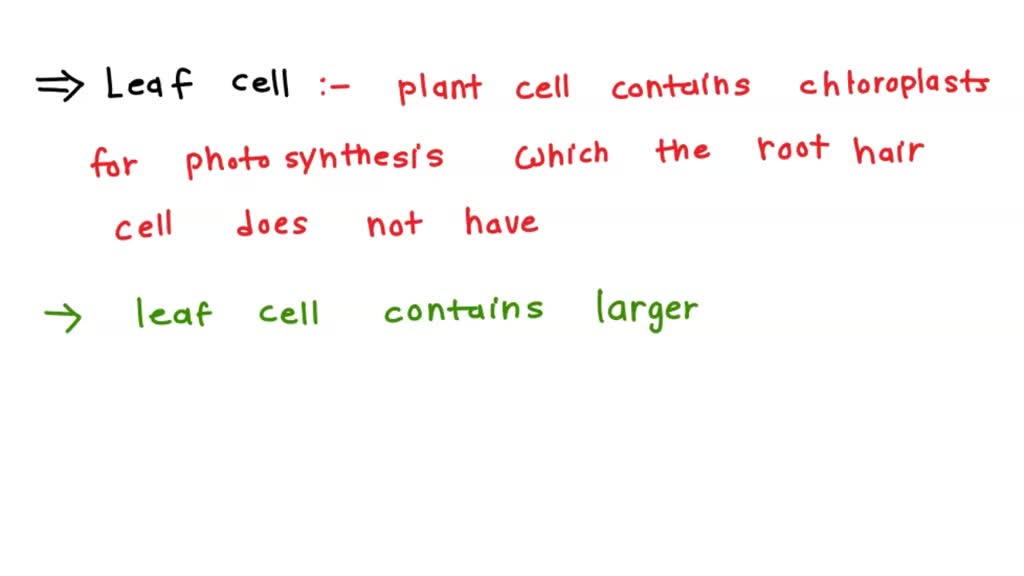 ⇒ Leaf cell :- plant cell contains chloroplasts
for photo synthesis which the root hair
cell does not have
→ leaf cell contains larger